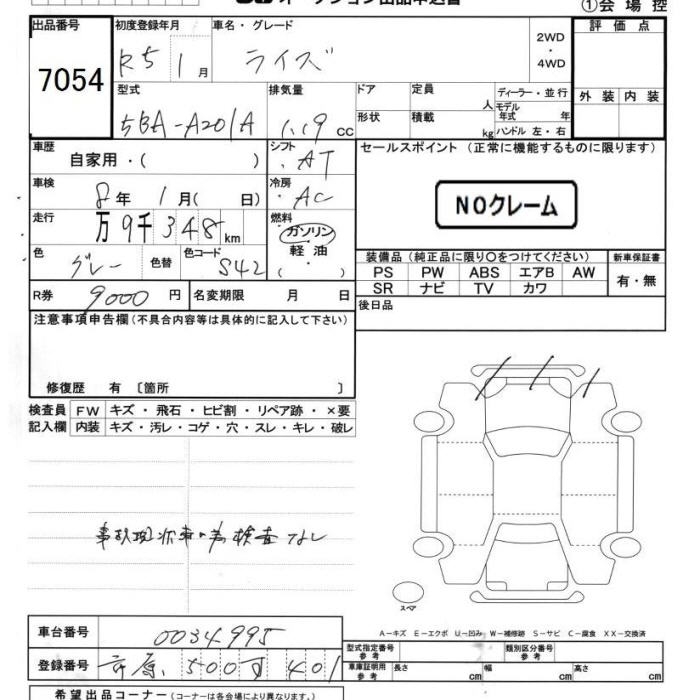 オークション出品申込書
①会場控
出品番号 初度登録年月 車名・グレード 評価点
7054 R5 1月 ライズ 2WD・4WD
型式 排気量 ドア 定員 人 ディーラー・並行 外装 内装
5BA-A201A 1.19 CC 形状 積載 kg モデル年式 年
ハンドル 左・右
車歴 自家用・( ) シフト AT セールスポイント (正常に機能するものに限ります)
車検 8年 1月( 日) 冷房 AC NOクレーム
走行 万9千348km 燃料 ガソリン
軽油
( )
色 グレー 色替 色コード S42 装備品(純正品に限り○をつけてください) 新車保証書
PS PW ABS エアB AW 有・無
SR ナビ TV カワ
R券 9000円 名変期限 月 日 後日品
注意事項申告欄(不具合内容等は具体的に記入して下さい)
修復歴 有 〔箇所 〕
検査員 FW キズ・飛石・ヒビ割・リペア跡・×要
記入欄 内装 キズ・汚レ・コゲ・穴・スレ・キレ・破レ
事故現状車の為検査なし
スペア
A-キズ E-エクボ U-凹み W-補修跡 S-サビ C-腐食 XX-交換済
車台番号 0034995 型式指定番号 参考 類別区分番号 参考
登録番号 500 401 車庫証明用 参考 長さ cm 幅 cm 高さ cm
希望出品コーナー(コーナーは各会場により異なります。)